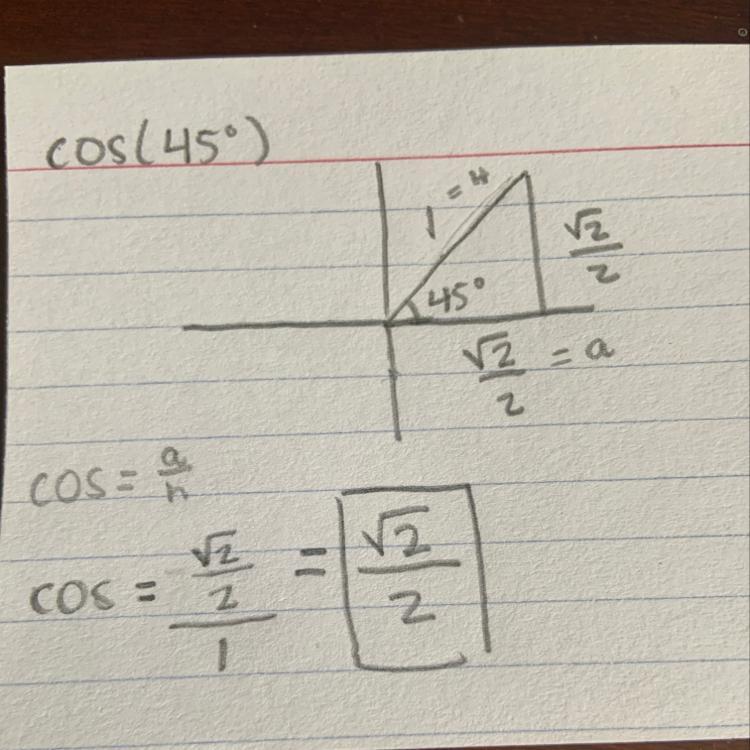 cos(45°)
1 = H
√2/2
45°
√2/2 = a
cos = a/h
cos = (√2/2)/1 = √2/2